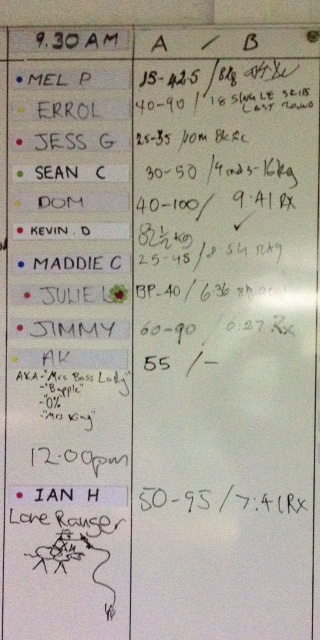 9.30 AM A / B
MEL P 15-42.5 / 8kg
ERROL 40-90 / 18 SINGLE SKIPS
LAST ROUND
JESS G 25-35 /
SEAN C 30-50 / 4 rnds-16kg
DOM 40-100 / 9:41 RX
KEVIN.D 82 1/2 kg
MADDIE C 25-45 /
JULIE BP-40 / 6:36
JIMMY 60-90 / 6:27 Rx
AK 55 / -
AKA-"Mrs Boss Lady"
-"Bupple"
-"0%
-"Mrs King"
12:00pm
IAN H 50-95 / 7:41 RX
Lone Ranger